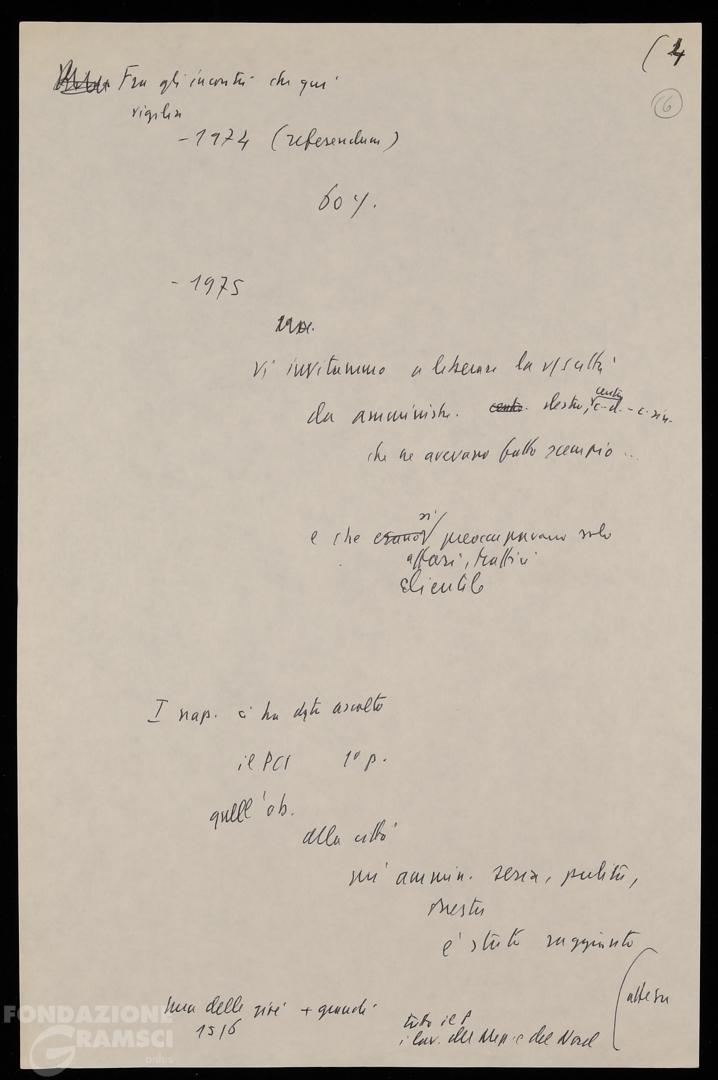 (4
6
Fra gli incontri che qui
vigilia
- 1974 (referendum)
60%.
- 1975
vi invitammo a liberare la città
da amministr. destra, centro c-d. - c-sin.
che ne avevano fatto scempio...
e che si preoccupavano solo
affari, traffici
clientele
I nap. ci ha dato ascolto
il PCI 1° p.
quell'ob.
alla città
un'ammin. seria, pulita,
onesta
è stato raggiunto
(attesa
una delle gioie + grandi
1976
tutto il P
i lav. del Mezz. e del Nord
FONDAZIONE
GRAMSCI
onlus